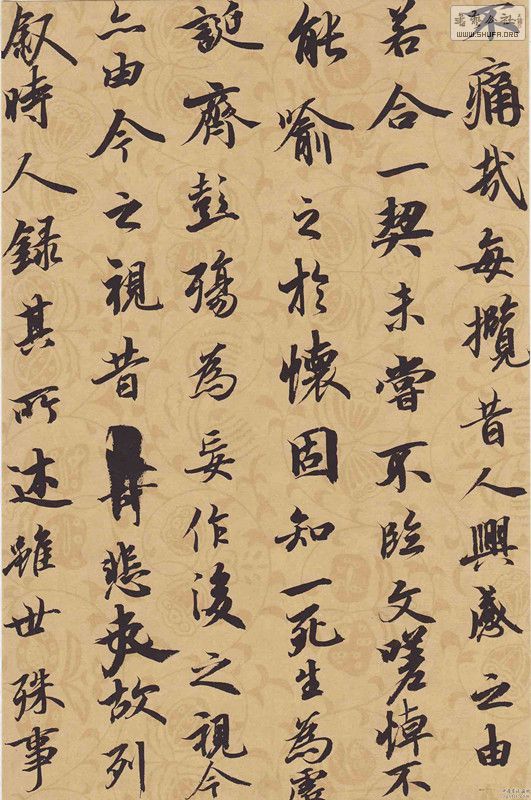 痛哉每攬昔人興感之由
若合一契未嘗不臨文嗟悼不
能喻之於懷固知一死生為虛
誕齊彭殤為妄作後之視今
亦由今之視昔悲夫故列
叙時人錄其所述雖世殊事
WWW.SHUFA.ORG